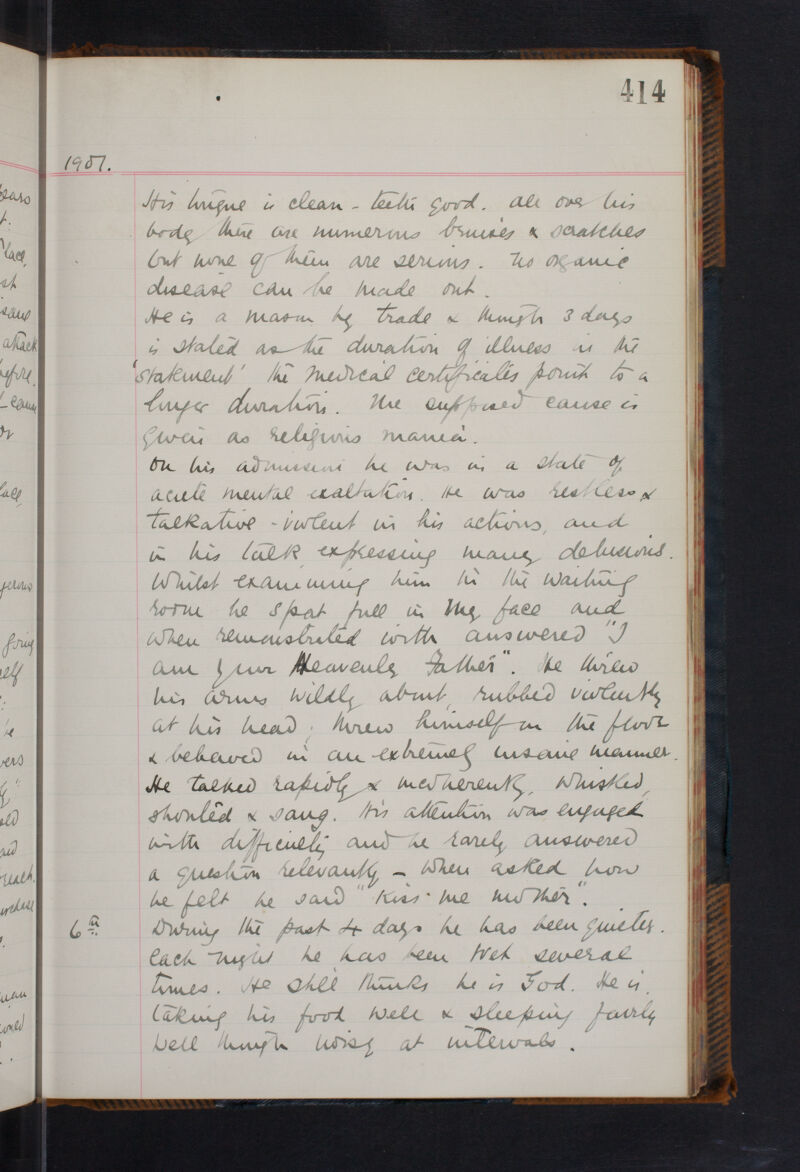 414
1901.
His tongue is clean - teeth good. all over his
body there are numerous bruises & scratches
but none of them are serious. No organic
disease can be made out.
He is a mason by trade & though 3 days
is stated as the duration of illness in the
'statement' the medical certificates point to a
longer duration. The supposed cause is
given as religious mania.
On his admission he was in a state of
acute mental exaltation. He was restless &
talkative - violent in his actions, and
in his talk expressing many delusions.
Whilst examining him in the waiting
room he spat full in my face and
when remonstrated with answered "I
am your Heavenly Father". He threw
his arms wildly about, rubbed violently
at his head, threw himself on the floor
& behaved in an extremely insane manner.
He talked rapidly & incoherently,
shouted & sang. His attention was engaged
with difficulty and he rarely answered
a question relevantly - when asked how
he felt he said "Kiss me mother".
6th During the past 4 days he has been quieter.
Each night he has been wet several
times. He still thinks he is God. He is
taking his food well & sleeping fairly
well though noisy at intervals.